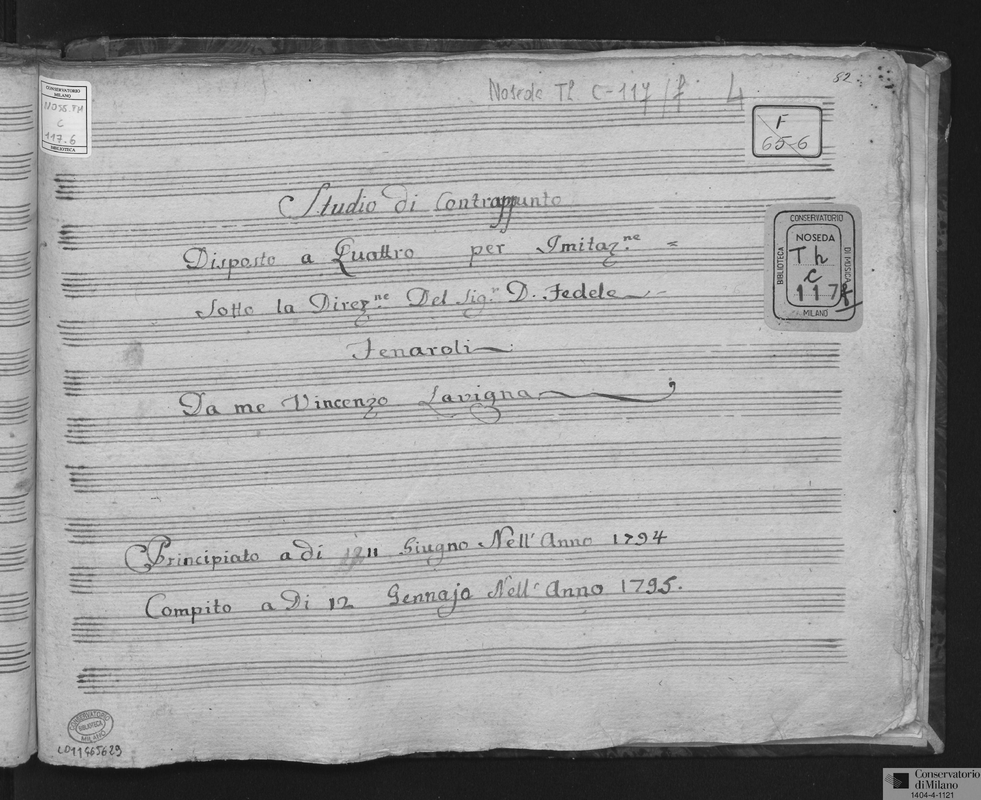 52
Noseda Th C-117/f 4
CONSERVATORIO
MILANO
NOSE.TH
C
117.6
BIBLIOTECA
F
65-6
Studio di Contrappunto
CONSERVATORIO
BIBLIOTECA
NOSEDA
Th
C
117f
DI MUSICA
MILANO
Disposto a Quattro per Imitaz.ne =
Sotto la Direz.ne Del Sig.r D. Fedele
Fenaroli
Da me Vincenzo Lavigna
Principiato a di 11 Giugno Nell' Anno 1794
Compito a Di 12 Gennajo Nell' Anno 1795.
CONSERVATORIO
BIBLIOTECA
MILANO
L011465629
Conservatorio
di Milano
1404-4-1121